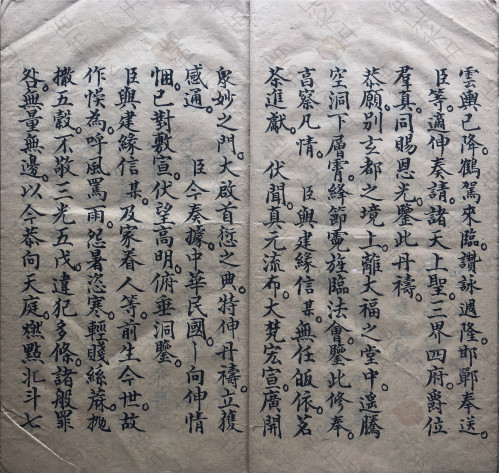 雲輿已降。鶴駕來臨。讚詠週隆。邯鄲奉送
臣等適伸奏請。諸天上聖。三界四府。爵位
羣真。同賜恩光。鑒此丹禱。
恭願。別玄都之境上。離大福之堂中。遥騰
空洞。下層霄。絳節霓旌。臨法會。鑒此修奉。
高察凡情。 臣與建緣信某。無任皈依。茗
茶進獻。 伏聞真元流布。大梵宏宣。廣開
衆妙之門。大啟首愆之典。特伸丹禱。立獲
感通。 臣今奏據。中華民國〡向伸情
悃。已對敷宣。伏望高明。俯垂洞鑒。
臣與建緣信某。及家眷人等。前生今世。故
作悮為。呼風罵雨。怨暑恣寒。輕賤絲蔴。拋
撒五穀。不敬三光五戊。違犯多條。諸般罪
咎。無量無邊。以今恭向天庭。燃點北斗七